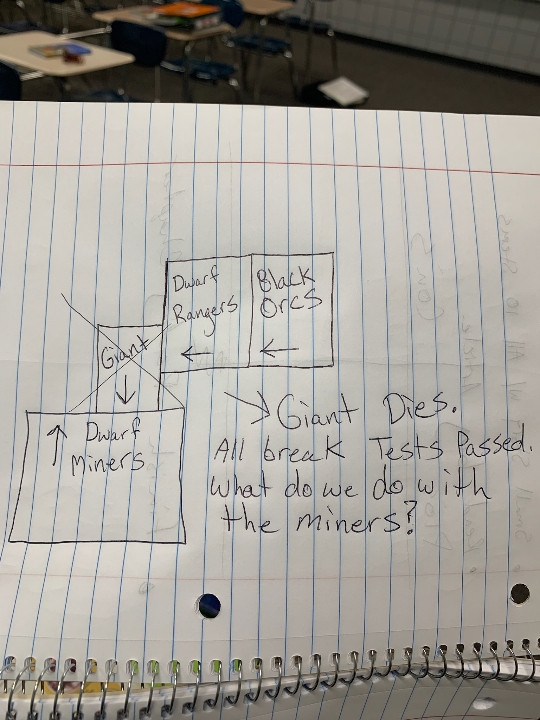 Dwarf
Rangers
Black
Orcs
Giant
Dwarf
Miners
Giant Dies.
All break Tests Passed.
What do we do with
the miners?